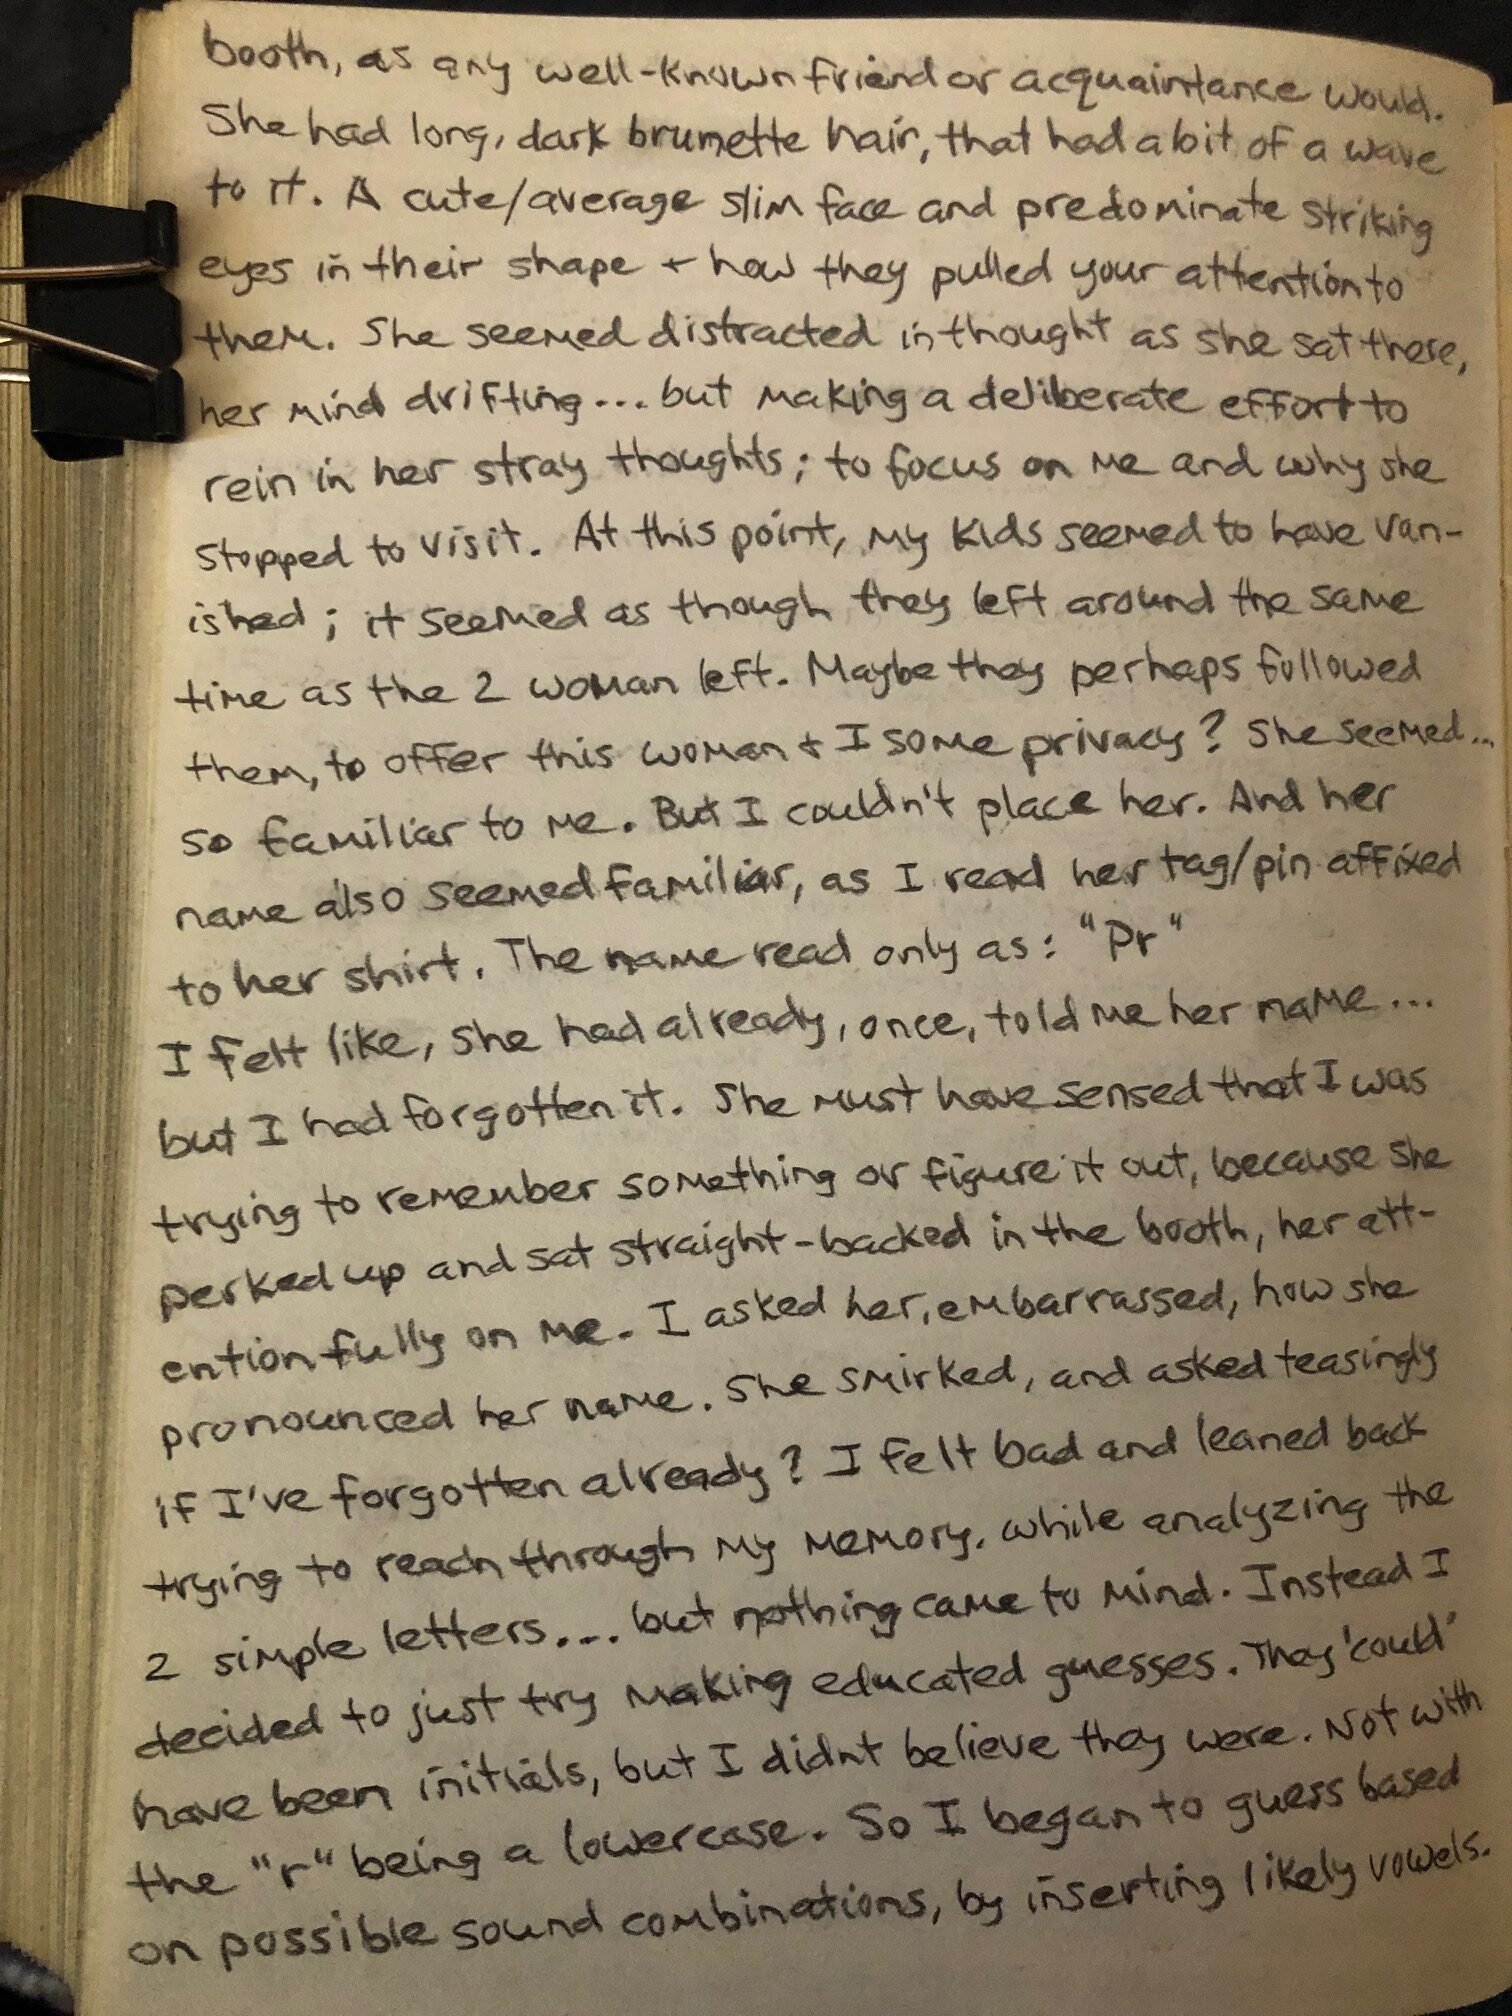 booth, as any well-known friend or acquaintance would.
She had long, dark brunette hair, that had a bit of a wave
to it. A cute/average slim face and predominate striking
eyes in their shape + how they pulled your attention to
them. She seemed distracted in thought as she sat there,
her mind drifting... but making a deliberate effort to
rein in her stray thoughts; to focus on me and why she
stopped to visit. At this point, my kids seemed to have van-
ished; it seemed as though they left around the same
time as the 2 woman left. Maybe they perhaps followed
them, to offer this woman + I some privacy? She seemed...
so familiar to me. But I couldn't place her. And her
name also seemed familiar, as I read her tag/pin affixed
to her shirt. The name read only as: "Pr"
I felt like, she had already, once, told me her name...
but I had forgotten it. She must have sensed that I was
trying to remember something or figure it out, because she
perked up and sat straight-backed in the booth, her att-
ention fully on me. I asked her, embarrassed, how she
pronounced her name. She smirked, and asked teasingly
if I've forgotten already? I felt bad and leaned back
trying to reach through my memory. while analyzing the
2 simple letters... but nothing came to mind. Instead I
decided to just try making educated guesses. They 'could'
have been initials, but I didnt believe they were. Not with
the "r" being a lowercase. So I began to guess based
on possible sound combinations, by inserting likely vowels.